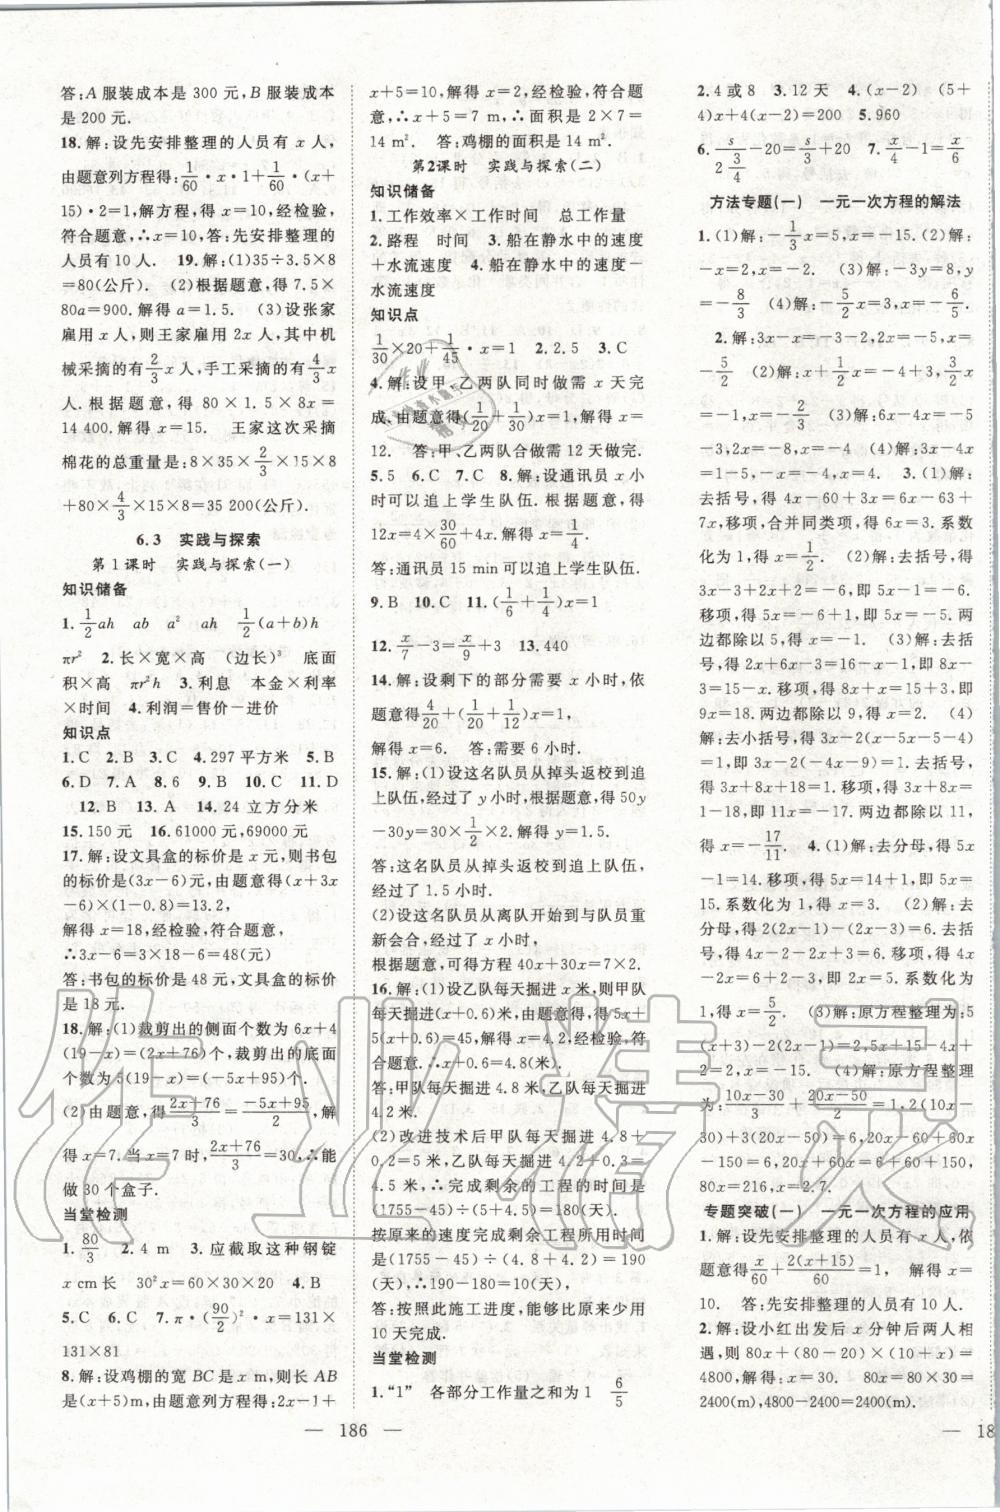 答:A服装成本是 300 元,B服装成本
是 200 元.
18.解:设先安排整理的人员有 x 人,
由题意列方程得:1/60·x+1/60·(x+
15)·2=1,解方程,得 x=10,经检验,
符合题意,∴x=10. 答:先安排整理的
人员有 10 人. 19.解:(1)35÷3.5×8
=80(公斤). (2)根据题意,得 7.5×
80a=900. 解得 a=1.5. (3)设张家
雇用 x 人,则王家雇用 2x 人,其中机
械采摘的有2/3x人,手工采摘的有4/3x
人.根据题意,得 80×1.5×8x=
14 400.解得 x=15. 王家这次采摘
棉花的总重量是:8×35×2/3×15×8
+80×4/3×15×8=35 200(公斤).
6.3 实践与探索
第1课时 实践与探索(一)
知识储备
1.1/2ah ab a² ah 1/2(a+b)h
πr² 2.长×宽×高 (边长)³ 底面
积×高 πr²h 3.利息 本金×利率
×时间 4.利润=售价-进价
知识点
1.C 2.B 3.C 4.297 平方米 5.B
6.D 7.A 8.6 9.B 10.C 11.D
12.B 13.A 14.24 立方分米
15.150 元 16.61000 元,69000 元
17.解:设文具盒的标价是 x 元,则书包
的标价是(3x-6)元,由题意得(x+3x
-6)×(1-0.8)=13.2,
解得 x=18,经检验,符合题意,
∴3x-6=3×18-6=48(元)
答:书包的标价是 48 元,文具盒的标价
是 18 元.
18.解:(1)裁剪出的侧面个数为 6x+4
(19-x)=(2x+76)个,裁剪出的底面
个数为 5(19-x)=(-5x+95)个.
(2)由题意,得(2x+76)/3=(-5x+95)/2,解
得 x=7.当 x=7 时,(2x+76)/3=30,∴能
做 30 个盒子.
当堂检测
1.80/3 2.4 m 3.应截取这种钢锭
x cm 长 30²x=30×30×20 4.B
5.C 6.C 7.π·(90/2)²·x=131×
131×81
8.解:设鸡棚的宽 BC 是 x m,则长 AB
是(x+5)m,由题意列方程得:2x+1+
x+5=10,解得 x=2,经检验,符合题
意,∴x+5=7(m),∴面积是 2×7=
14 m². 答:鸡棚的面积是 14 m².
第2课时 实践与探索(二)
知识储备
1.工作效率×工作时间 总工作量
2.路程 时间 3.船在静水中的速度
+水流速度 4.船在静水中的速度-
水流速度
知识点
1/30×20+1/45·x=1 2.2.5 3.C
4.解:设甲、乙两队同时做需 x 天完
成、由题意得(1/20+1/30)x=1. 解得 x=
12. 答:甲、乙两队合做需 12 天做完.
5.5 6.C 7.C 8.解:设通讯员 x 小
时可以追上学生队伍.根据题意,得
12x=4×30/60+4x,解得 x=1/4.
答:通讯员 15 min可以追上学生队伍.
9.B 10.C 11.(1/6+1/4)x=1
12.x/7-3=x/9+3 13.440
14.解:设剩下的部分需要 x 小时,依
题意得4/20+(1/20+1/12)x=1,
解得 x=6. 答:需要 6 小时.
15.解:(1)设这名队员从掉头返校到追
上队伍,经过了 y 小时,根据题意,得50y
-30y=30×1/2×2.解得 y=1.5.
答:这名队员从掉头返校到追上队伍,
经过了 1.5 小时.
(2)设这名队员从离队开始到与队员
重新会合,经过了 x 小时,
根据题意,可得方程 40x+30x=7×2.
16.解:(1)设乙队每天掘进 x 米,则甲队
每天掘进(x+0.6)米,由题意得,得 5x
+5(x+0.6)=45,解得 x=4.2,经检验,符
合题意.∴x+0.6=4.8(米).
答:甲队每天掘进 4.8 米,乙队每天掘进
4.2 米.
(2)改进技术后甲队每天掘进 4.8+
0.2=5米,乙队每天掘进 4.2+0.3=
4.5 米,∴完成剩余的工程的时间为
(1755-45)÷(5+4.5)=180(天).
按原来的速度完成剩余工程所需时间
是(1755-45)÷(4.8+4.2)=190
(天),∴190-180=10(天),
答:按照此施工进度,能够比原来少用
10 天完成.
当堂检测
1.“1” 各部分工作量之和为 1 6/5
2.4 或 8 3.12 天 4.(x-2) (5+
4)x+4(x-2)=200 5.960
6.s/(2 3/4)-20=s/3+20 7.x/4-1=x/6
方法专题(一) 一元一次方程的解法
1.(1)解:-1/3x=5,x=-15. (2)解:
-x=2,x=-2. (3)解:-3y=8,y=
-8/3 (4)解:-5/2x=3,x=-6/5.
2.解:-3x=-5+1,-3x=-4,x=
5/3 (2)解:-1/2x+x=-4+3,1/2x
=-1,x=-2/3 (3)解:6x-4x=-5
-3,2x=-8,x=-4 (4)解:3x-4x
=1-5,-x=-4,x=4. 3.(1)解:
去括号,得 4x-60+3x=6x-63+
7x,移项,合并同类项,得-6x=-3.系数
化为 1,得 x=1/2. (2)解:去括号,得
3x-3+2x-2=-6,即 5x-1=-6.
移项,得 5x=-6+1,即 5x=-5. 两
边都除以 5,得 x=-1. (3)解:去括
号,得 4x-60+5x=-42,即 9x-60
=-42.移项,得 9x=-42+60,即
9x=18.两边都除以 9,得 x=2. (4)
解:去小括号,得 3x-2(x-4x-8)
=1.去中括号,得 3x-2x+8x+16=
1,即 9x+16=1. 移项,得 3x+8x=
1-18,即 11x=-17. 两边都除以 11,
得 x=-17/11. 4.(1)解:去分母,得
5x-1=14.移项,得 5x=14+1,即 5x
=15.系数化为 1,得 x=3. (2)解:去分
母,得 2(x+1)-(x-2)=6.去括号,得
2x+2-x+2=6.移项,合并同类项,得
x=5/2. (3)解:原方程整理为:5
(x+3)-2(x-1)=2,5x+15-4x+
2=2,x=-15. (4)解:原方程整理
为:(10x-30)/3+(20x-50)/2=1,2(10x-
30)+3(20x-50)=6,20x-60+60x
-150=6,20x+60x=6+60+150,
80x=216,x=2.7.
专题突破(一) 一元一次方程的应用
1.解:设先安排整理的人员有 x 人,依
题意得x/60+2(x+15)/60=1, 解得 x=
10. 答:先安排整理的人员有 10 人.
2.解:设小红出发后 x 分钟后两人相
遇,则 80x+(80-20)x+5×80=
4800,解得:x=80,80x=80×30=
2400(m),4800-2400=2400(m).
— 186 —
— 18